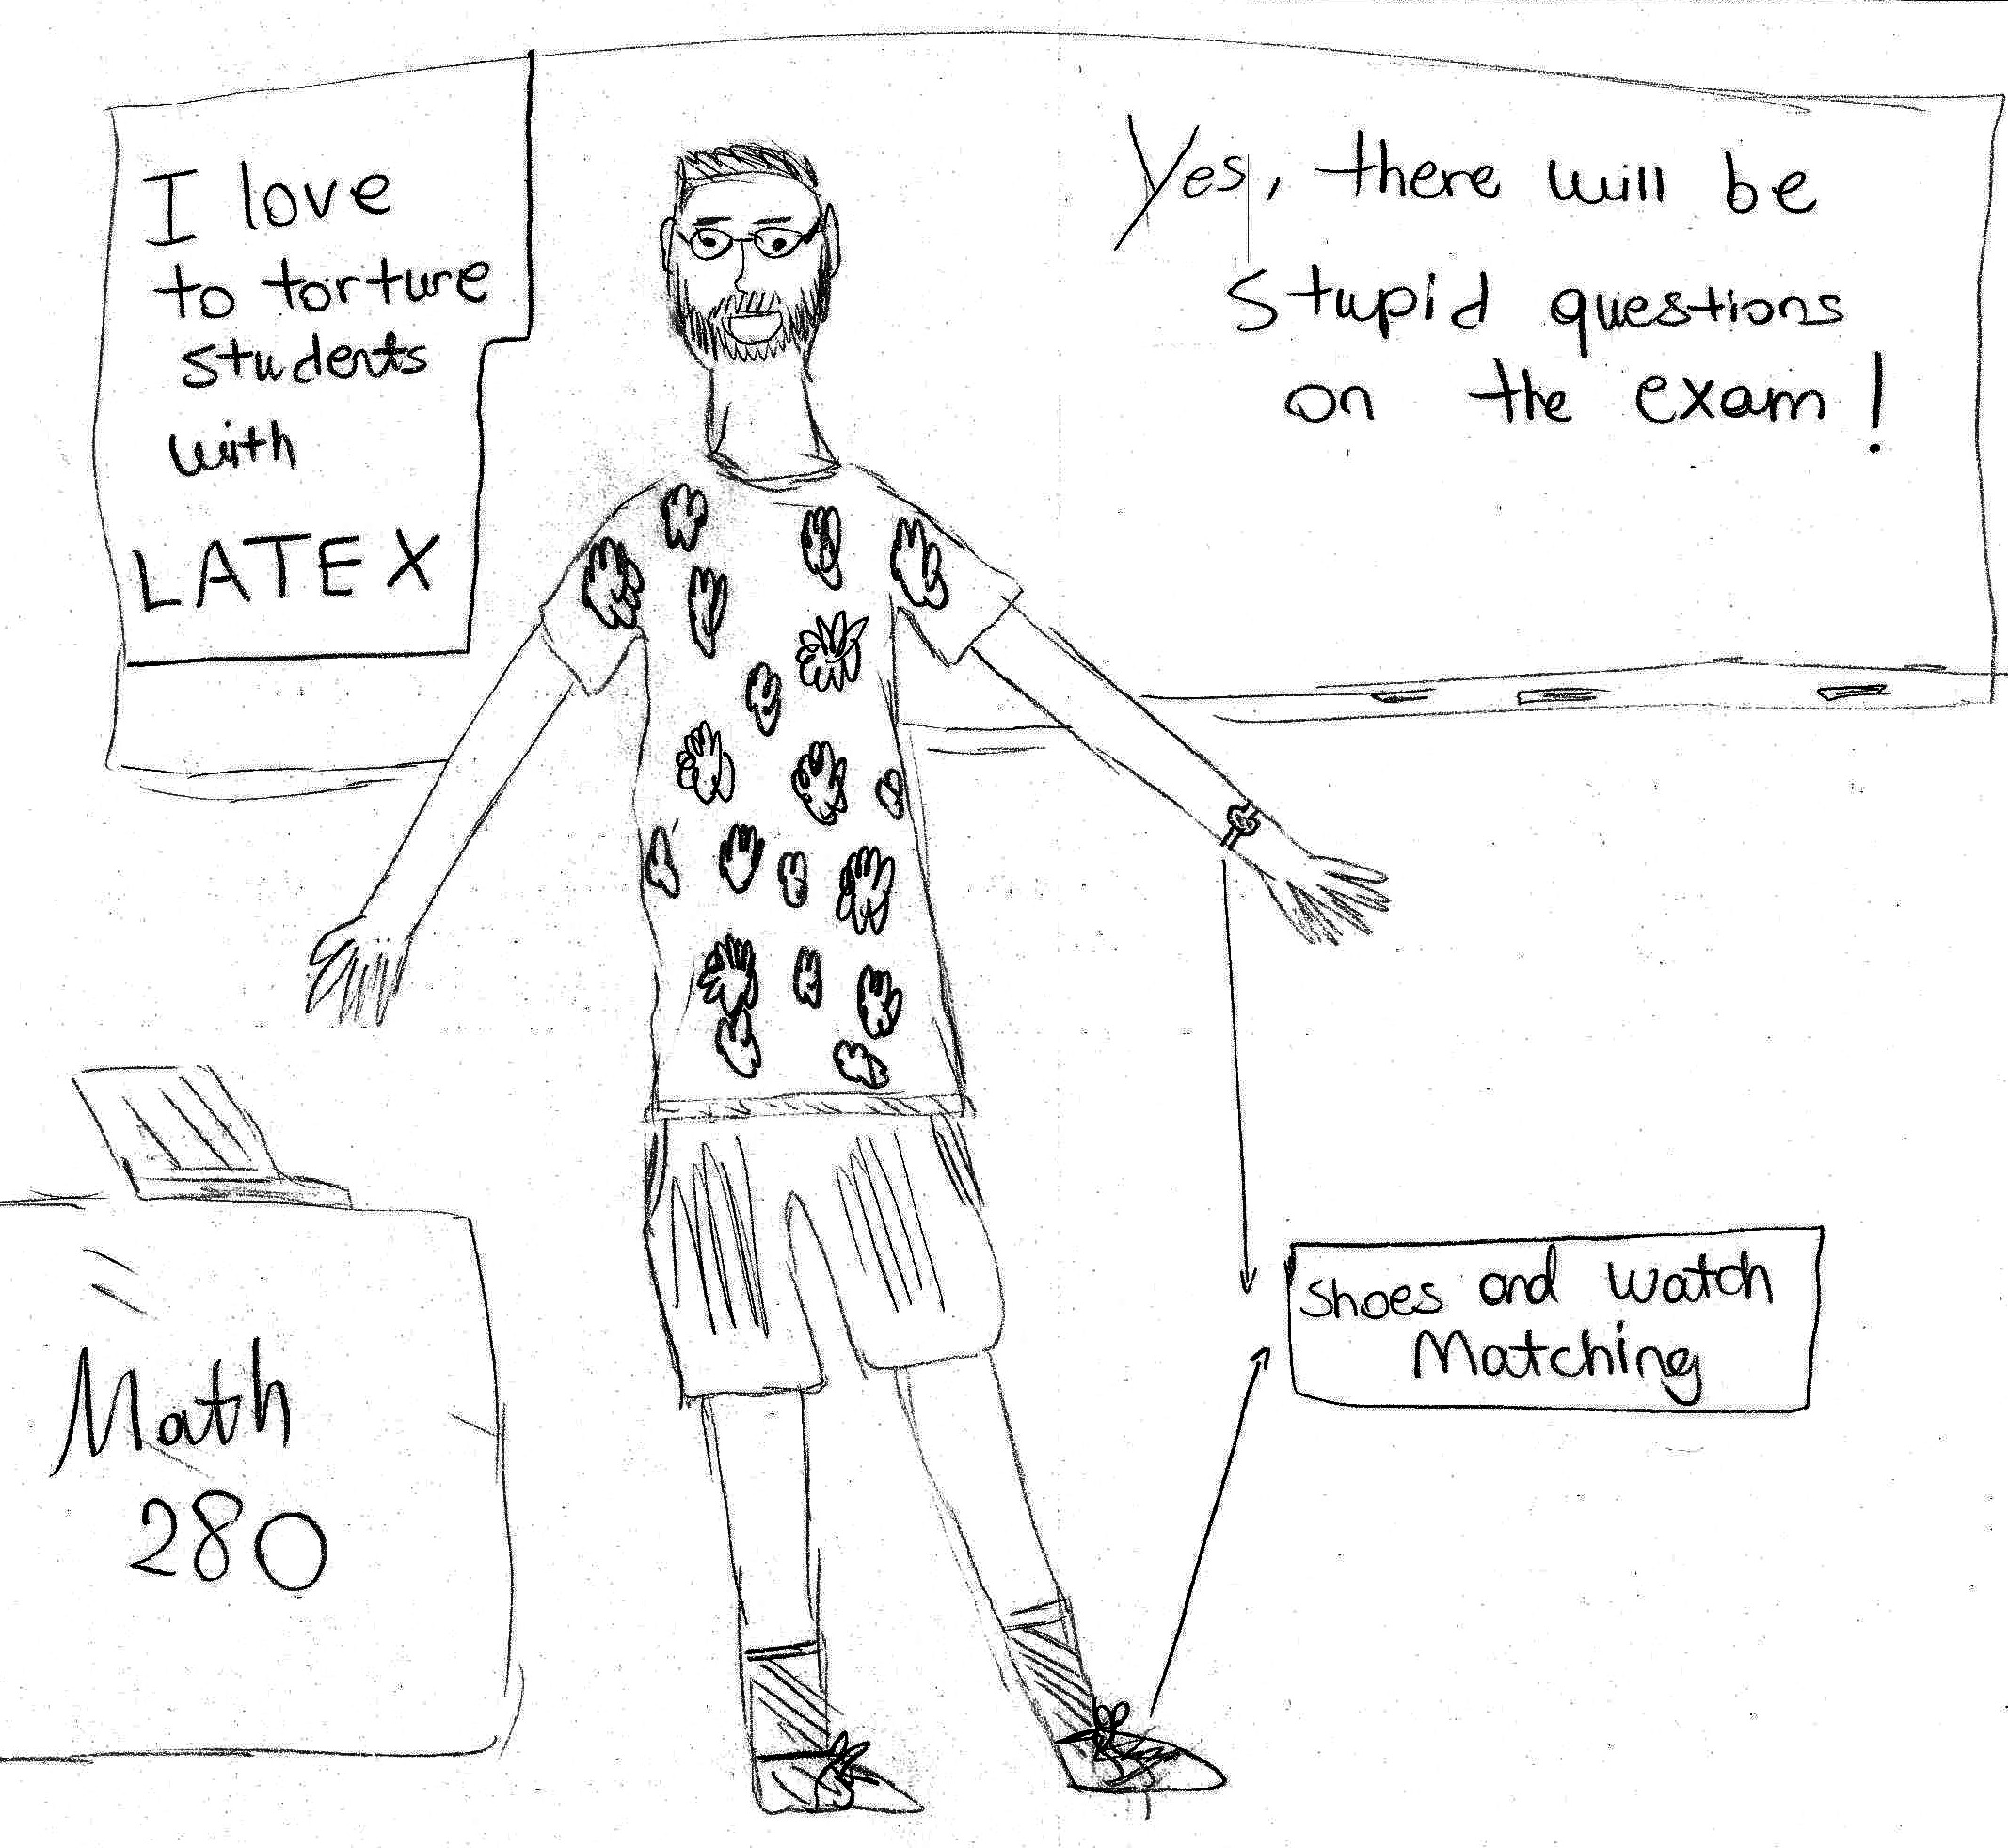 I love
to torture
students
with
LATEX
Yes, there will be
stupid questions
on the exam!
Shoes and watch
Matching
Math
280